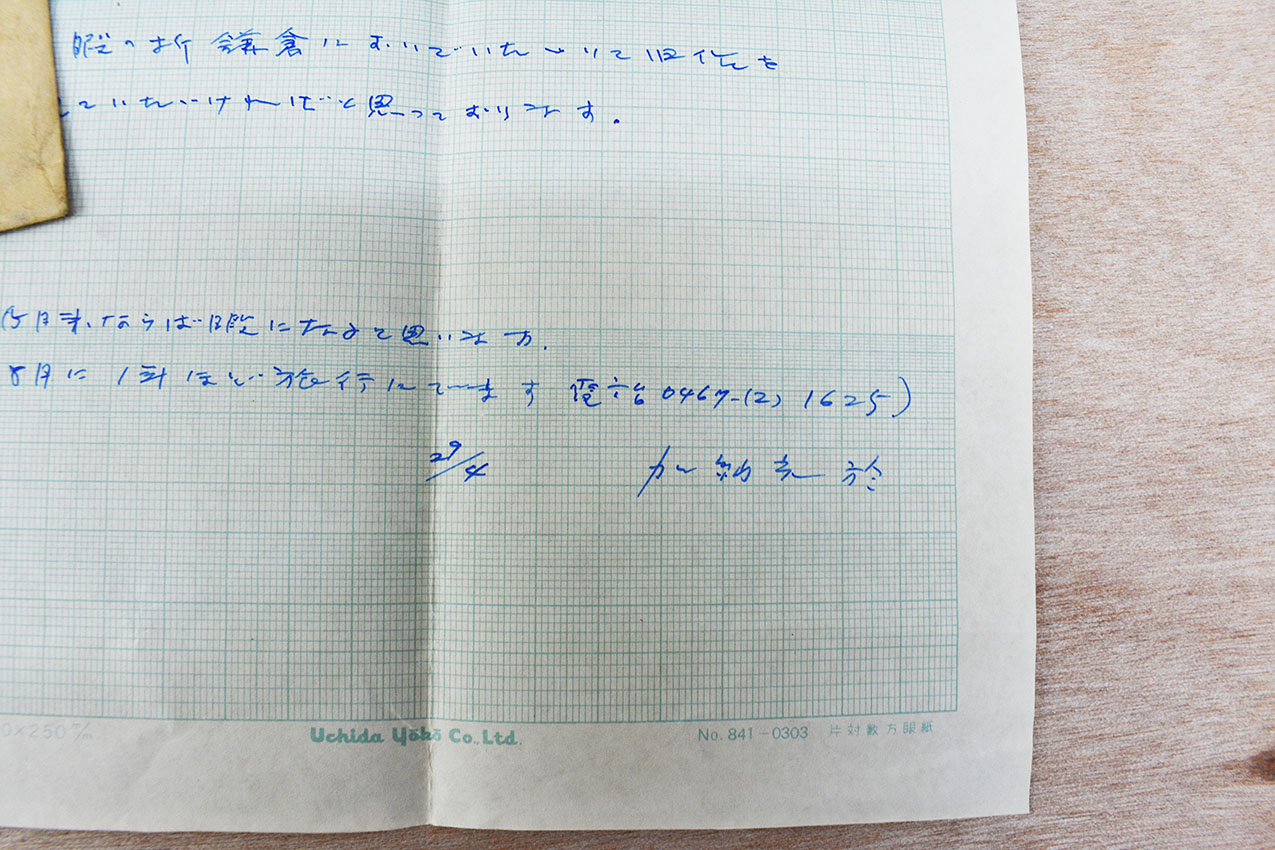 暇の折鎌倉においでいただいて旧作を
ていただければと思っております。
5月末ならば暇になると思います.
8月に1回ほど旅行にでます 電話0467-(2)1625)
29/4 加納光於
0×250㎜ Uchida Yōkō Co., Ltd. No. 841-0303 片対数方眼紙